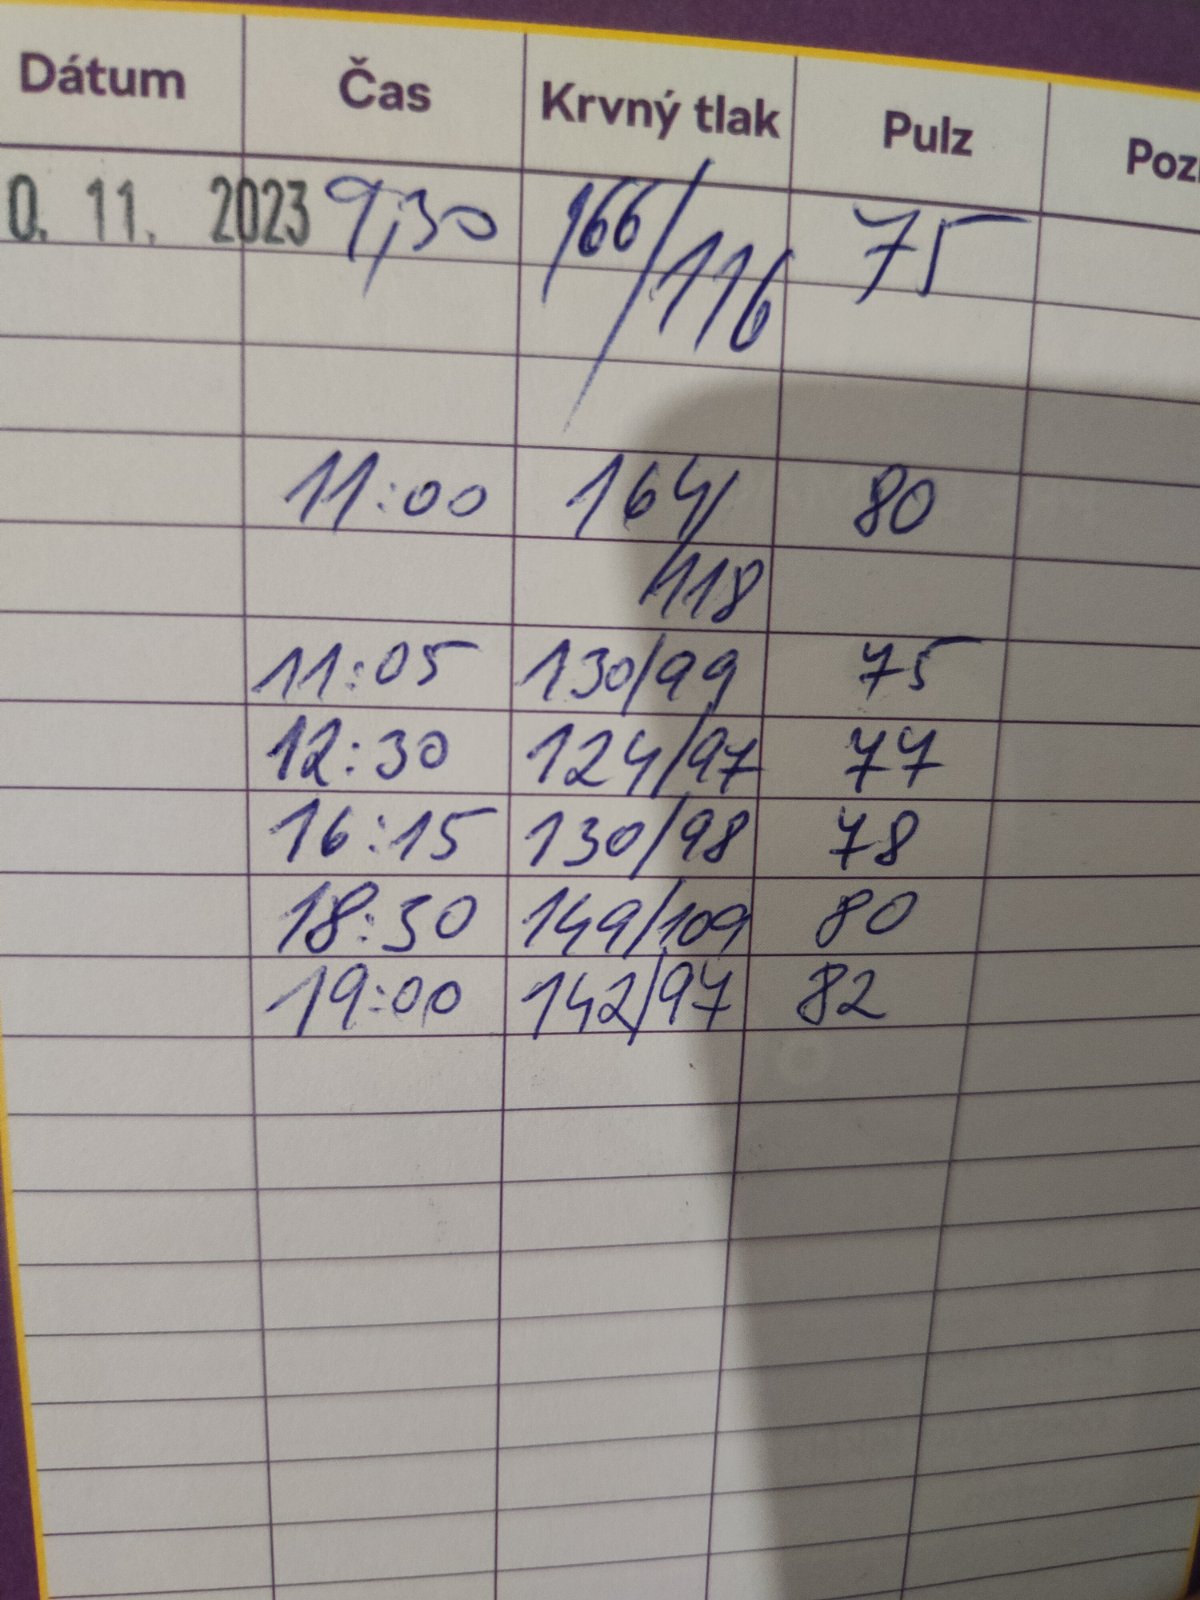 Dátum Čas Krvný tlak Pulz Poz
0. 11. 2023 9,30 166/116 75
11:00 164/ 80
118
11:05 130/99 75
12:30 124/97 77
16:15 130/98 78
18:30 149/109 80
19:00 142/97 82